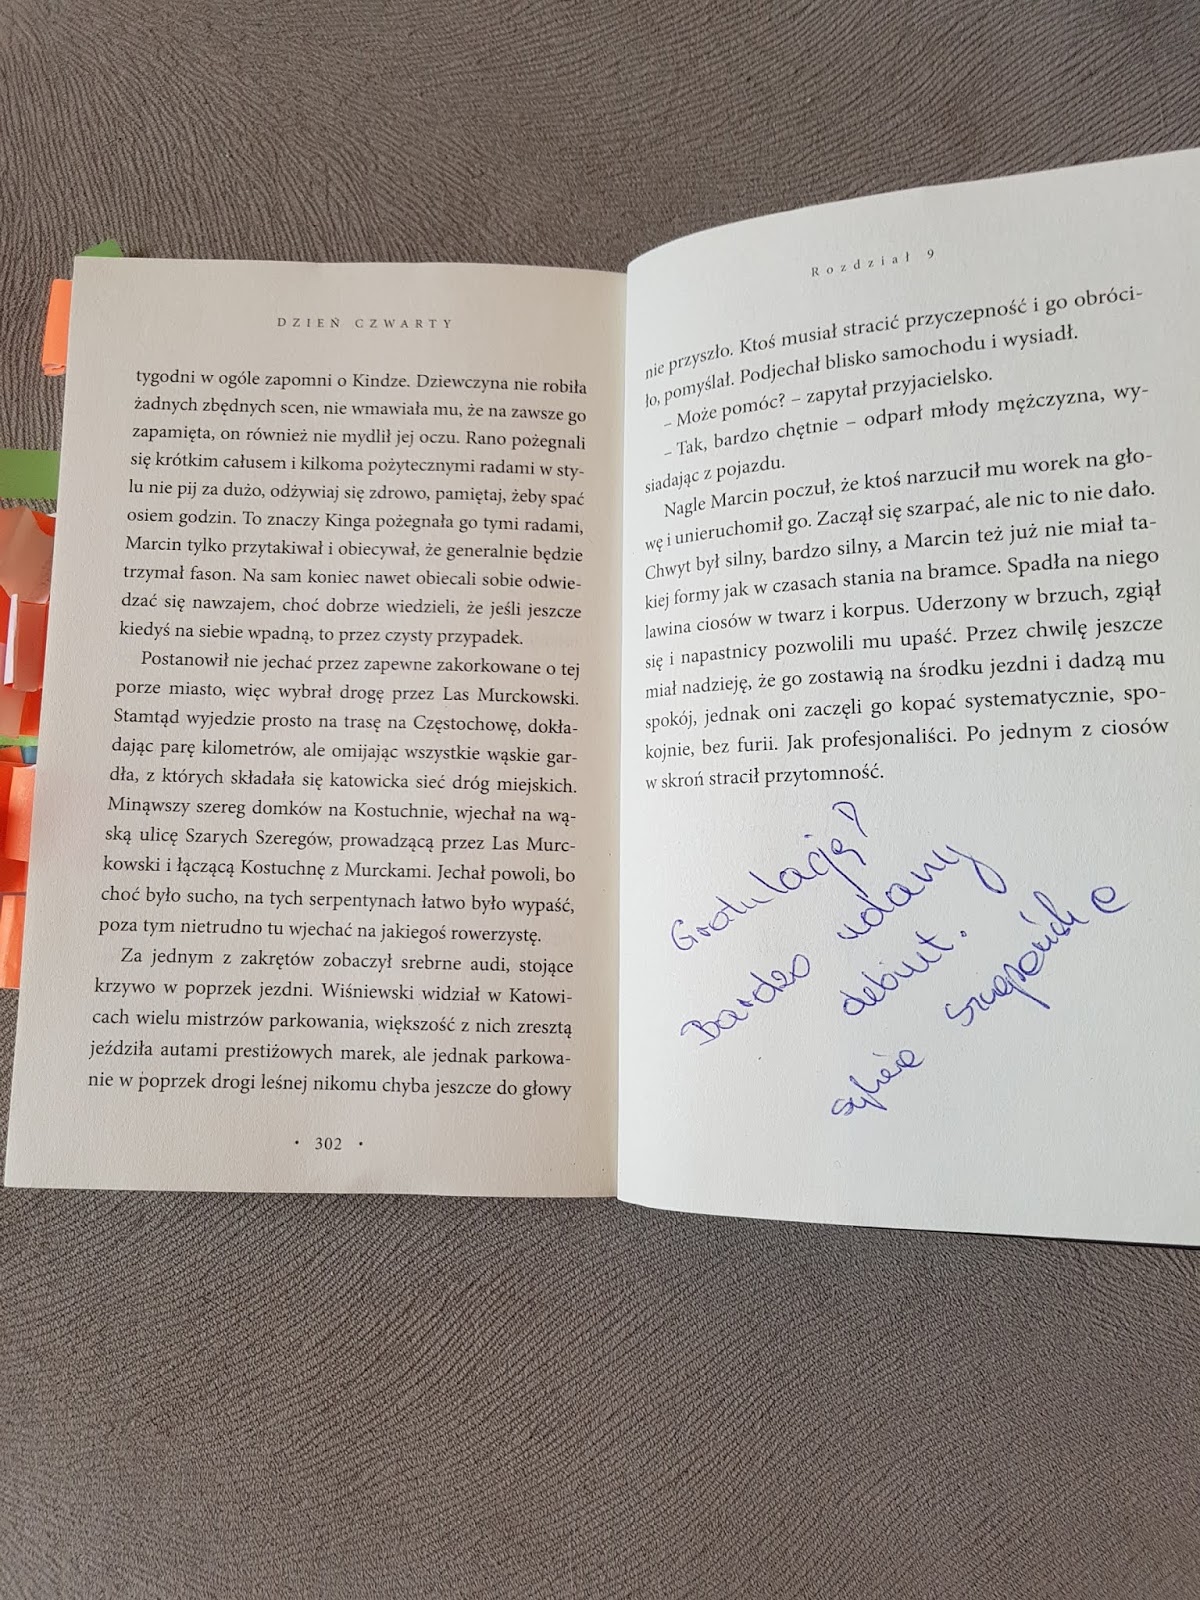 DZIEŃ CZWARTY
tygodni w ogóle zapomni o Kindze. Dziewczyna nie robiła
żadnych zbędnych scen, nie wmawiała mu, że na zawsze go
zapamięta, on również nie mydlił jej oczu. Rano pożegnali
się krótkim całusem i kilkoma pożytecznymi radami w sty-
lu nie pij za dużo, odżywiaj się zdrowo, pamiętaj, żeby spać
osiem godzin. To znaczy Kinga pożegnała go tymi radami,
Marcin tylko przytakiwał i obiecywał, że generalnie będzie
trzymał fason. Na sam koniec nawet obiecali sobie odwie-
dzać się nawzajem, choć dobrze wiedzieli, że jeśli jeszcze
kiedyś na siebie wpadną, to przez czysty przypadek.
Postanowił nie jechać przez zapewne zakorkowane o tej
porze miasto, więc wybrał drogę przez Las Murckowski.
Stamtąd wyjedzie prosto na trasę na Częstochowę, dokła-
dając parę kilometrów, ale omijając wszystkie wąskie gar-
dła, z których składała się katowicka sieć dróg miejskich.
Minąwszy szereg domków na Kostuchnie, wjechał na wą-
ską ulicę Szarych Szeregów, prowadzącą przez Las Murc-
kowski i łączącą Kostuchnę z Murckami. Jechał powoli, bo
choć było sucho, na tych serpentynach łatwo było wypaść,
poza tym nietrudno tu wjechać na jakiegoś rowerzystę.
Za jednym z zakrętów zobaczył srebrne audi, stojące
krzywo w poprzek jezdni. Wiśniewski widział w Katowi-
cach wielu mistrzów parkowania, większość z nich zresztą
jeździła autami prestiżowych marek, ale jednak parkowa-
nie w poprzek drogi leśnej nikomu chyba jeszcze do głowy
• 302 •
Rozdział 9
nie przyszło. Ktoś musiał stracić przyczepność i go obróci-
ło, pomyślał. Podjechał blisko samochodu i wysiadł.
– Może pomóc? – zapytał przyjacielsko.
– Tak, bardzo chętnie – odparł młody mężczyzna, wy-
siadając z pojazdu.
Nagle Marcin poczuł, że ktoś narzucił mu worek na gło-
wę i unieruchomił go. Zaczął się szarpać, ale nic to nie dało.
Chwyt był silny, bardzo silny, a Marcin też już nie miał ta-
kiej formy jak w czasach stania na bramce. Spadła na niego
lawina ciosów w twarz i korpus. Uderzony w brzuch, zgiął
się i napastnicy pozwolili mu upaść. Przez chwilę jeszcze
miał nadzieję, że go zostawią na środku jezdni i dadzą mu
spokój, jednak oni zaczęli go kopać systematycznie, spo-
kojnie, bez furii. Jak profesjonaliści. Po jednym z ciosów
w skroń stracił przytomność.
Gratulacje!
Bardzo udany
debiut.